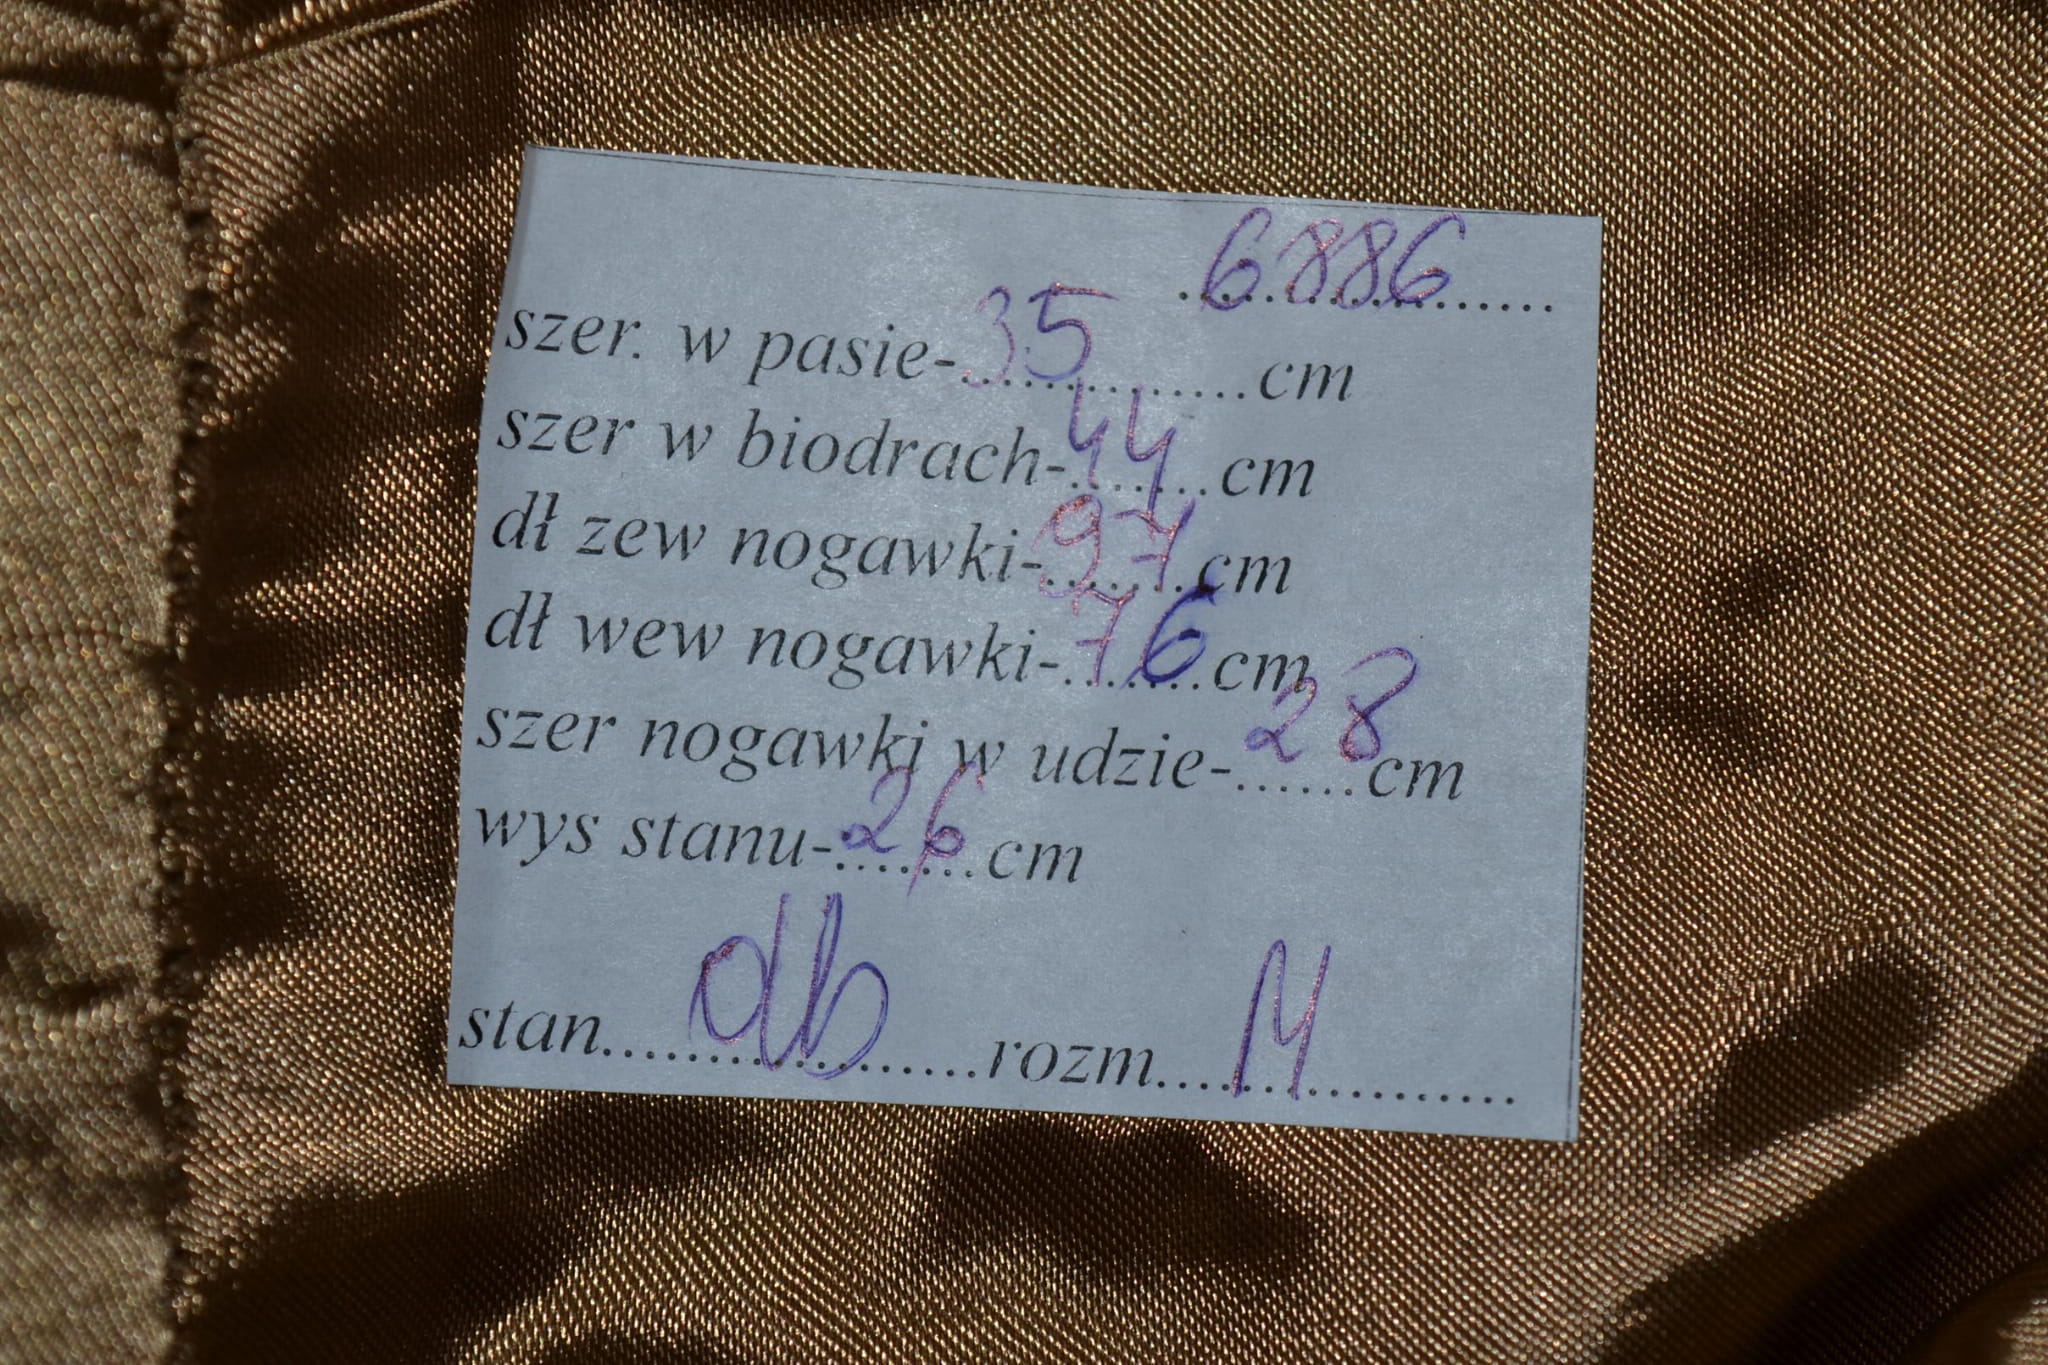 6886
szer. w pasie-35cm
szer w biodrach-44cm
dł zew nogawki-97cm
dł wew nogawki-76cm
szer nogawki w udzie-28cm
wys stanu-26cm
stan db rozm M